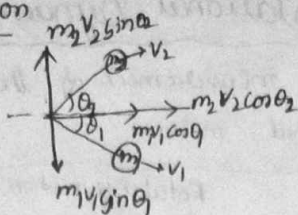 m₂v₂sinθ₂
m₂
v₂
θ₂
m₂v₂cosθ₂
θ₁
m₁v₁cosθ₁
m₁
v₁
m₁v₁sinθ₁